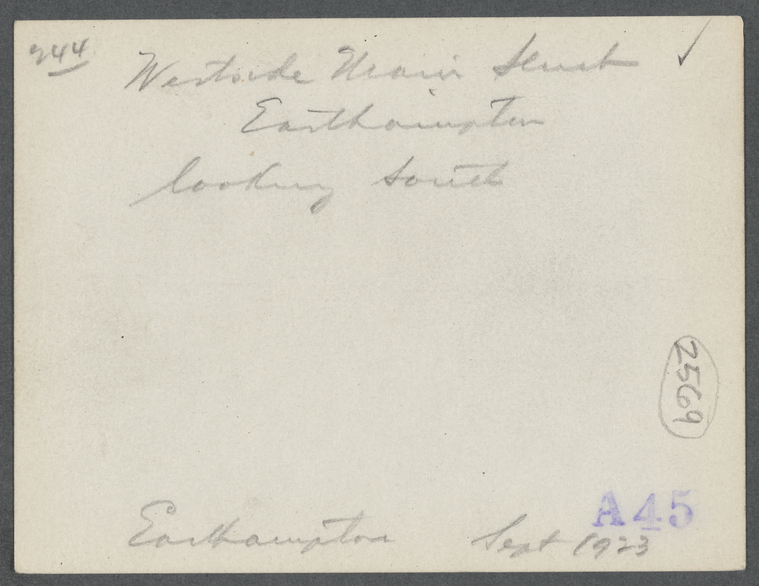 244
Westside Main Street
Easthampton
looking south
2569
A45
Easthampton Sept 1923